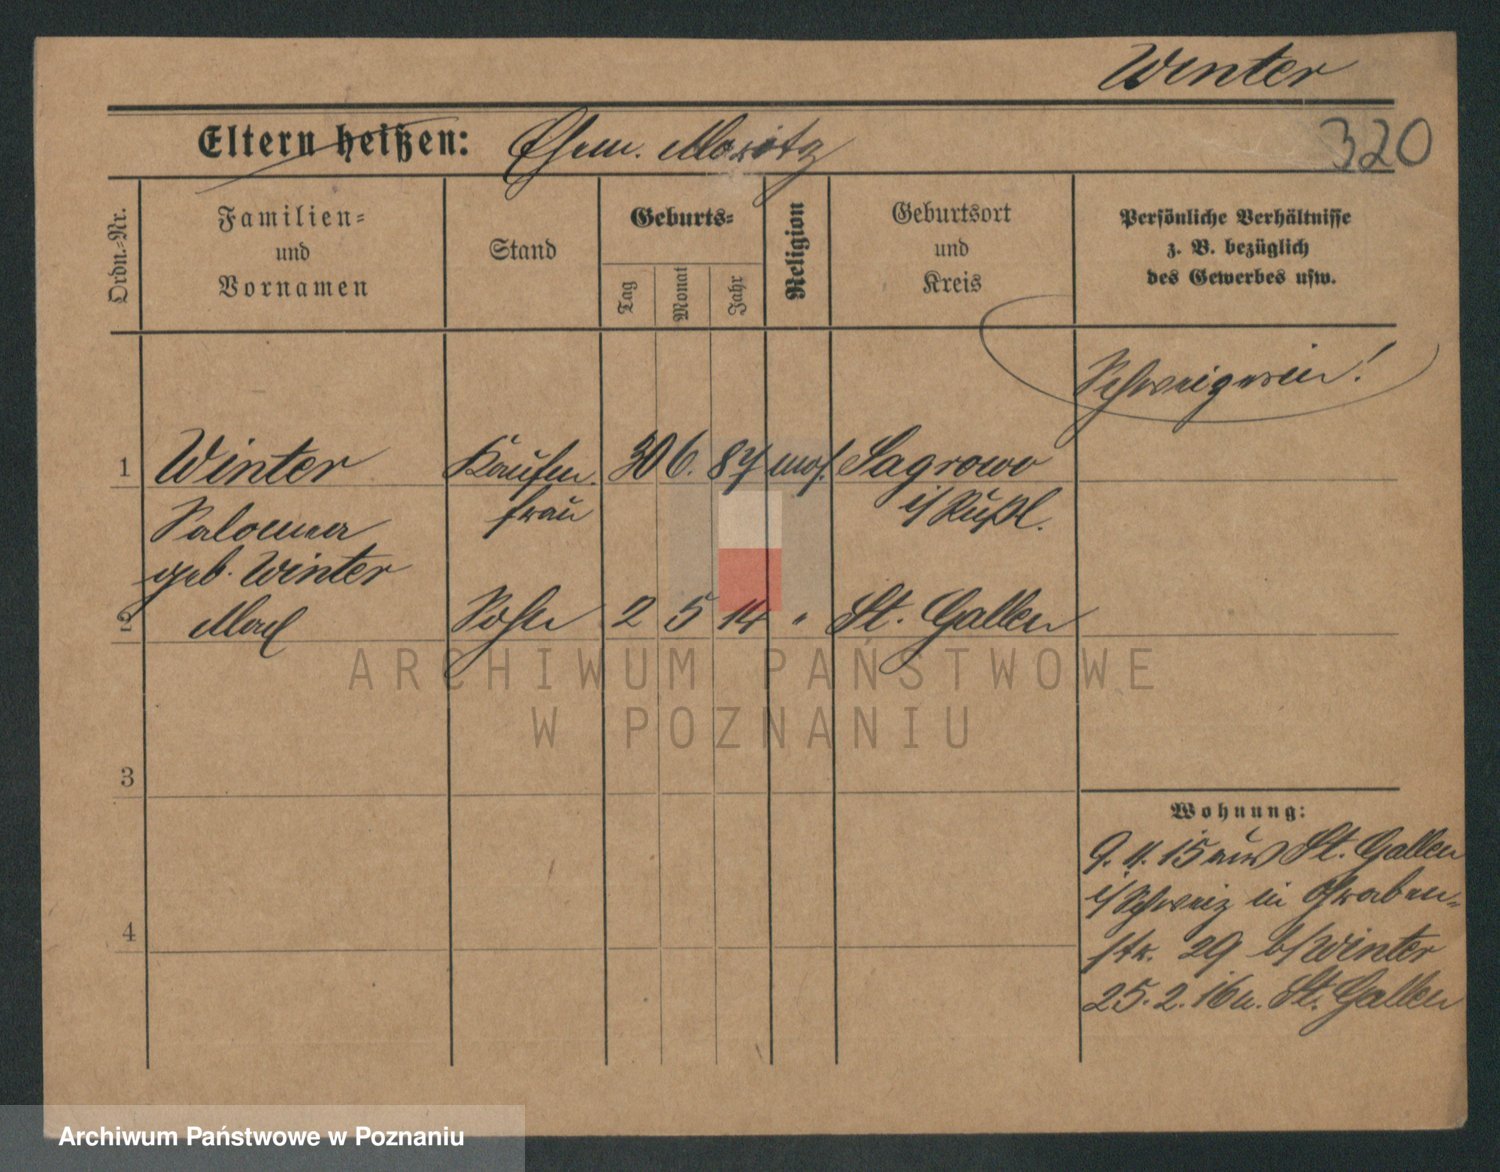 Winter
320
Eltern heißen: Ehem. Moritz
Ordn.=Nr.
Familien=
und
Vornamen
Stand
Geburts=
Tag
Monat
Jahr
Religion
Geburtsort
und
Kreis
Persönliche Verhältnisse
z. B. bezüglich
des Gewerbes usw.
Schweizerin!
1 Winter Kaufm. 30 6. 87 mos. Sagrowo
frau i/Rußl.
Salomea
geb. Winter
2 Sohn 2 5 14 " St. Gallen
3
4
Wohnung:
9. 11. 15 aus St. Gallen
i/Schweiz in Graben=
str. 29 b/Winter
25. 2. 16 n. St. Gallen
ARCHIWUM PAŃSTWOWE
W POZNANIU
Archiwum Państwowe w Poznaniu